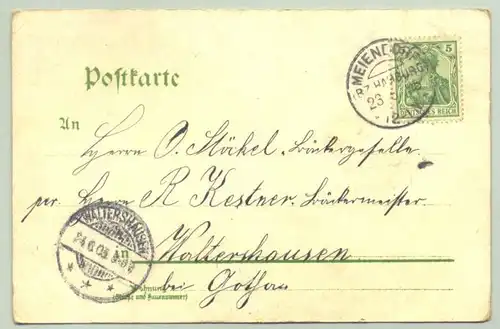 Postkarte
5
MEIENDORF
(BZ. HAMBURG)
23
DEUTSCHES REICH
An
Herrn O. Stöckel, Bäckergeselle
per. Herrn R Kestner, Bäckermeister.
WALTERSHAUSEN
24.6.03
Waltershausen
bei Gotha
Wohnung
(Straße und Hausnummer)